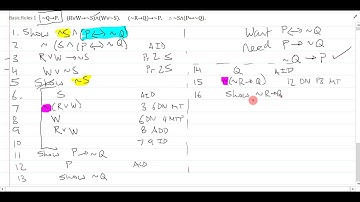 Basic Rules 1 ~Q→P. (R∨W→~S)∧(W∨~S). (~R→Q)→P. ∴ ~S∧(P↔~Q).
1. Show ~S ∧ (P↔~Q)
2. ~(S∧(P↔~Q) AID
3. R∨W→~S Pr 2 S
4. W∨~S Pr 2 S
5 Show ~S
6. S AID
7 (R∨W) 3 6DN MT
8 W 6DN 4MTP
9 R∨W 8 ADD
10 7 9 ID
11 Show P→~Q
12 P ACD
13 Show ~Q
Want P↔~Q
Need P→~Q
~Q→P ✓
14 Q AID
15 (~R→Q) 12 DN Pr3 MT
16 Show ~R→Q